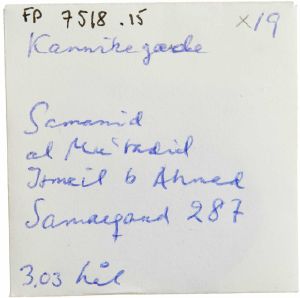 FP 7518.15
x19
Kannikegærde
Samanid
al Mu'tadid
Ismeil b Ahmed
Samarqand 287
3,03 hel